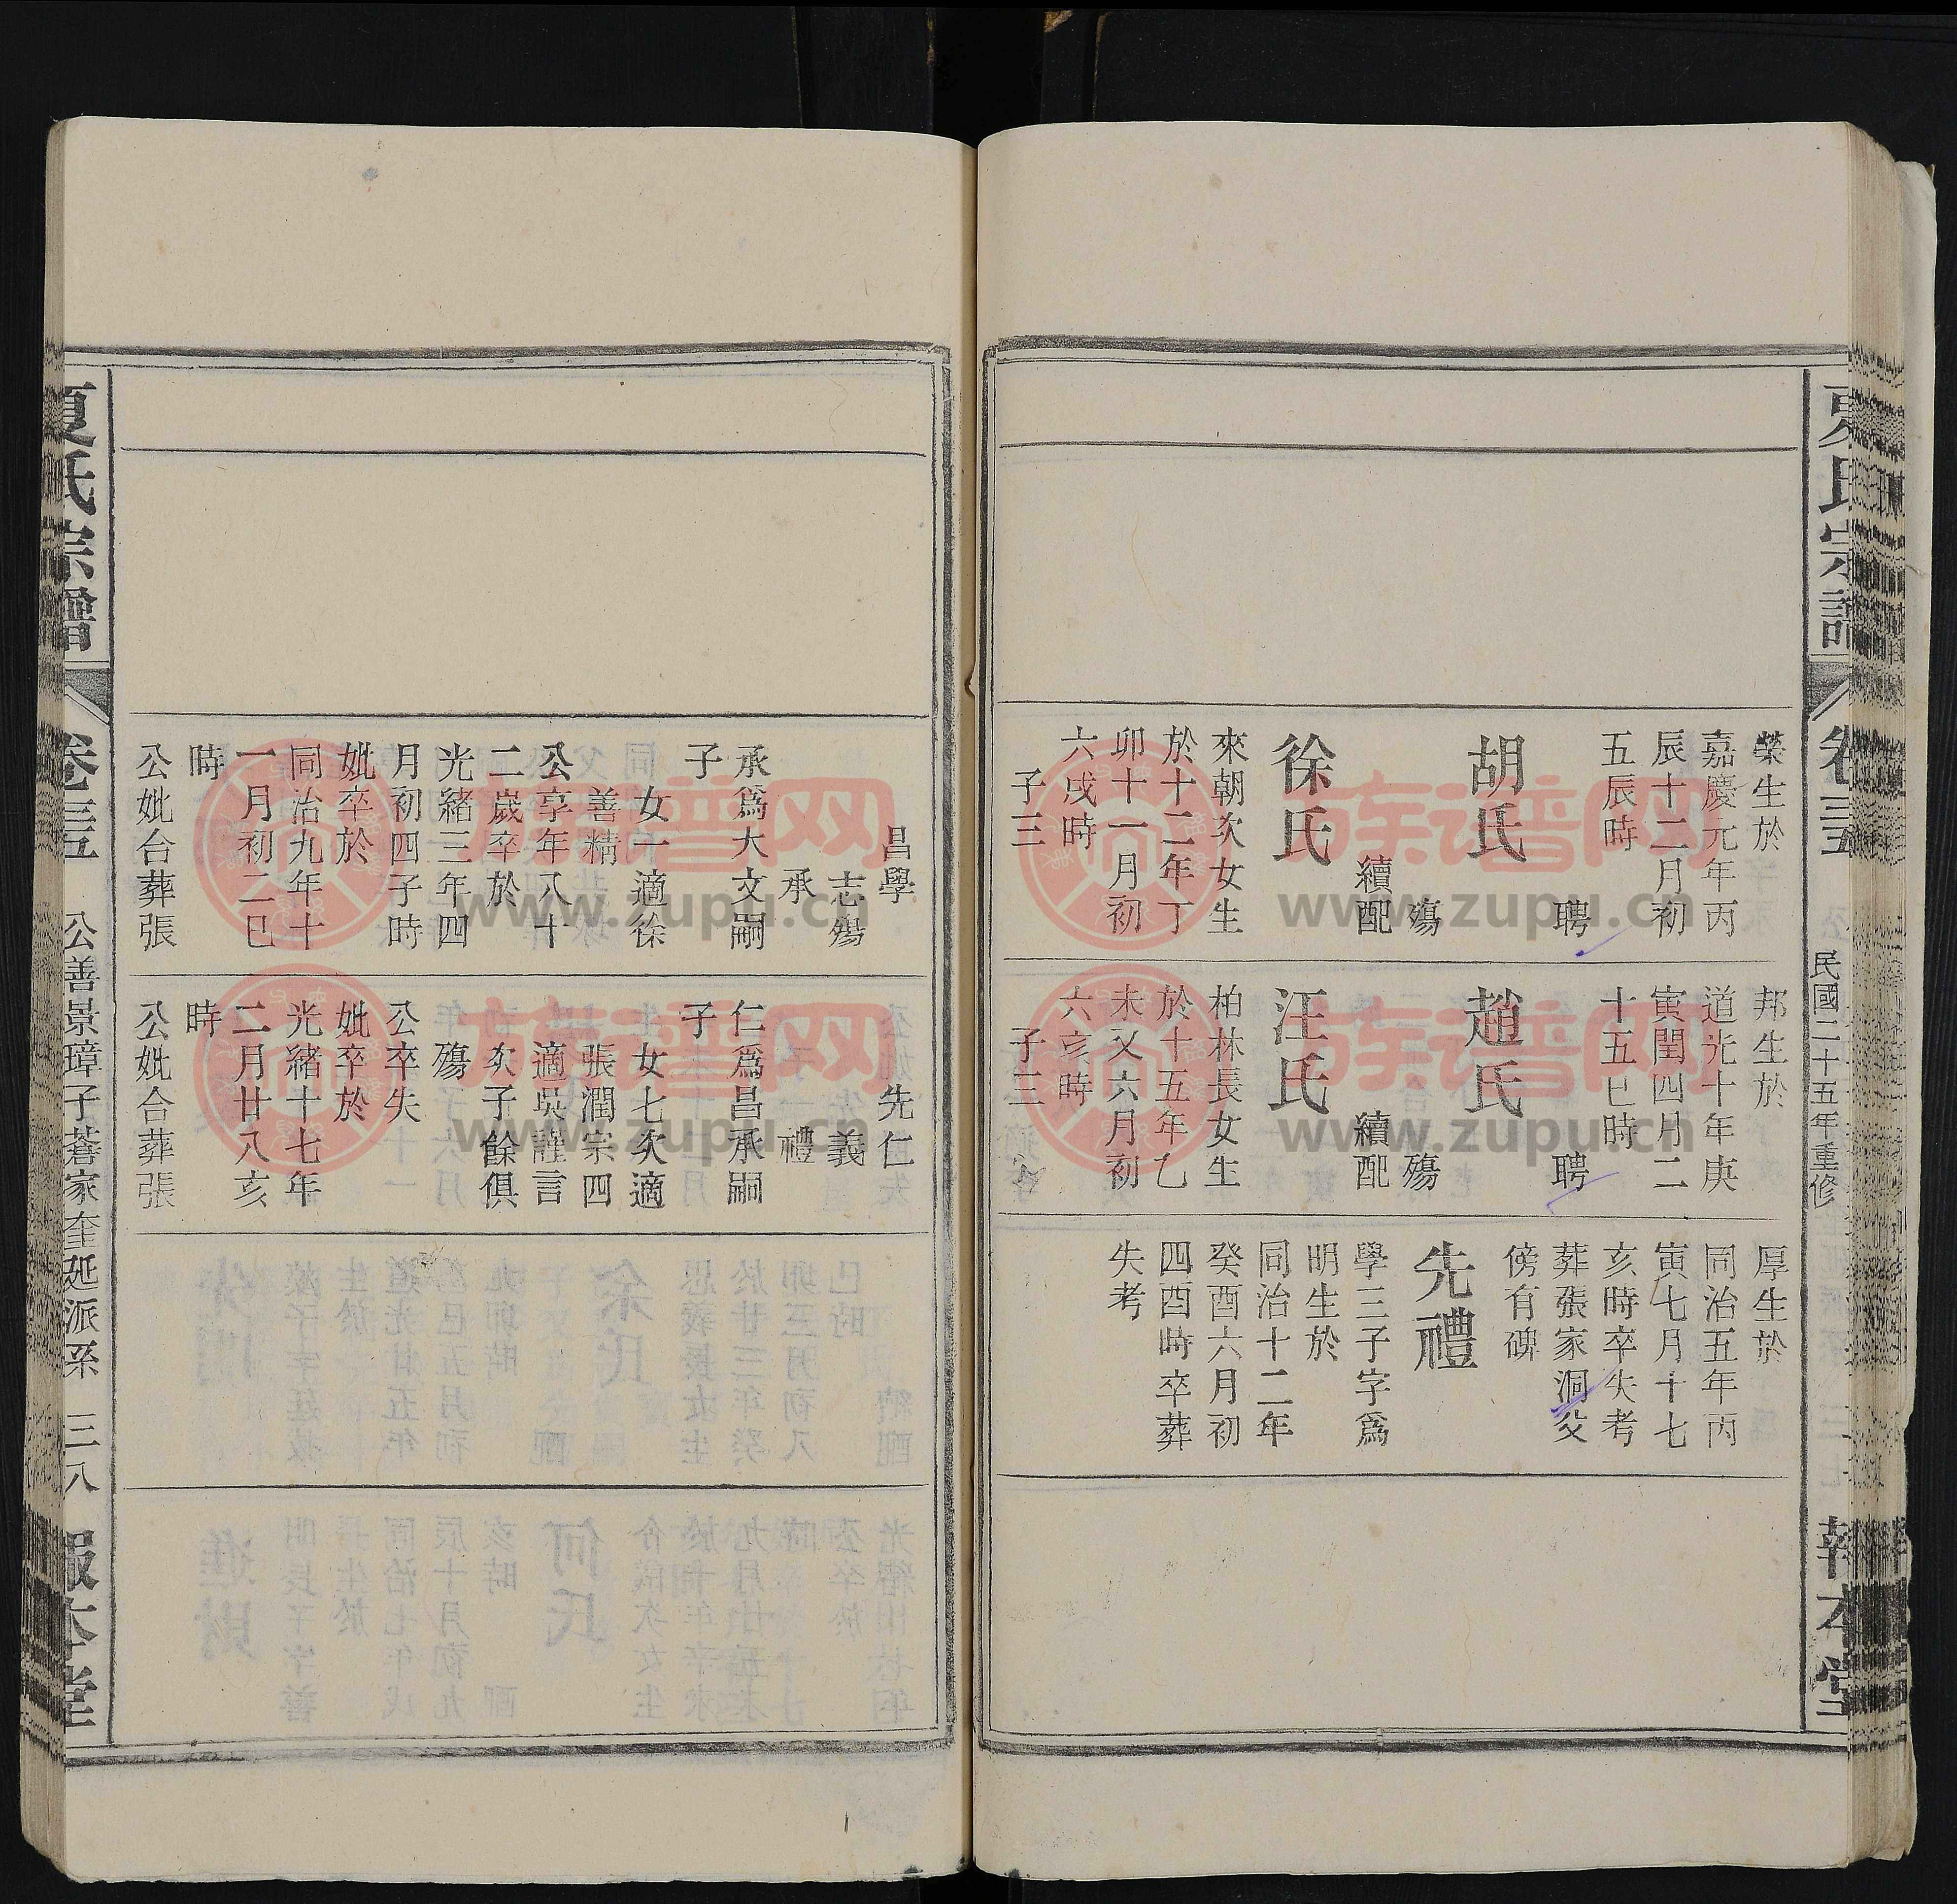 夏氏宗譜
卷三五
民國二十五年重修
報本堂
榮生於
嘉慶元年丙
辰十二月初
五辰時
聘
胡氏
殤
續配
徐氏
來朝次女生
於十二年丁
卯十一月初
六戌時
子三
邦生於
道光十年庚
寅閏四月二
十五巳時
聘
趙氏
殤
續配
汪氏
柏林長女生
於十五年乙
未又六月初
六亥時
子三
厚生於
同治五年丙
寅七月十七
亥時卒失考
葬張家洞父
傍有碑
先禮
學三子字爲
明生於
同治十二年
癸酉六月初
四酉時卒葬
失考
昌學
志殤
承
承爲大文嗣
子
女一適徐
善精
公享年八十
二歲卒於
光緒三年四
月初四子時
妣卒於
同治九年十
一月初二巳
時
公妣合葬張
先仁
義
禮
仁爲昌承嗣
子
女七次適
張潤宗四
適吳謹言
次子餘俱
殤
公卒失
妣卒於
光緒十七年
二月廿八亥
時
公妣合葬張
夏氏宗譜
卷三五
公善景璋子蒼家奎延派系
三八
報本堂
族谱网
www.zupu.cn
族谱网
www.zupu.cn
族谱网
www.zupu.cn
族谱网
www.zupu.cn